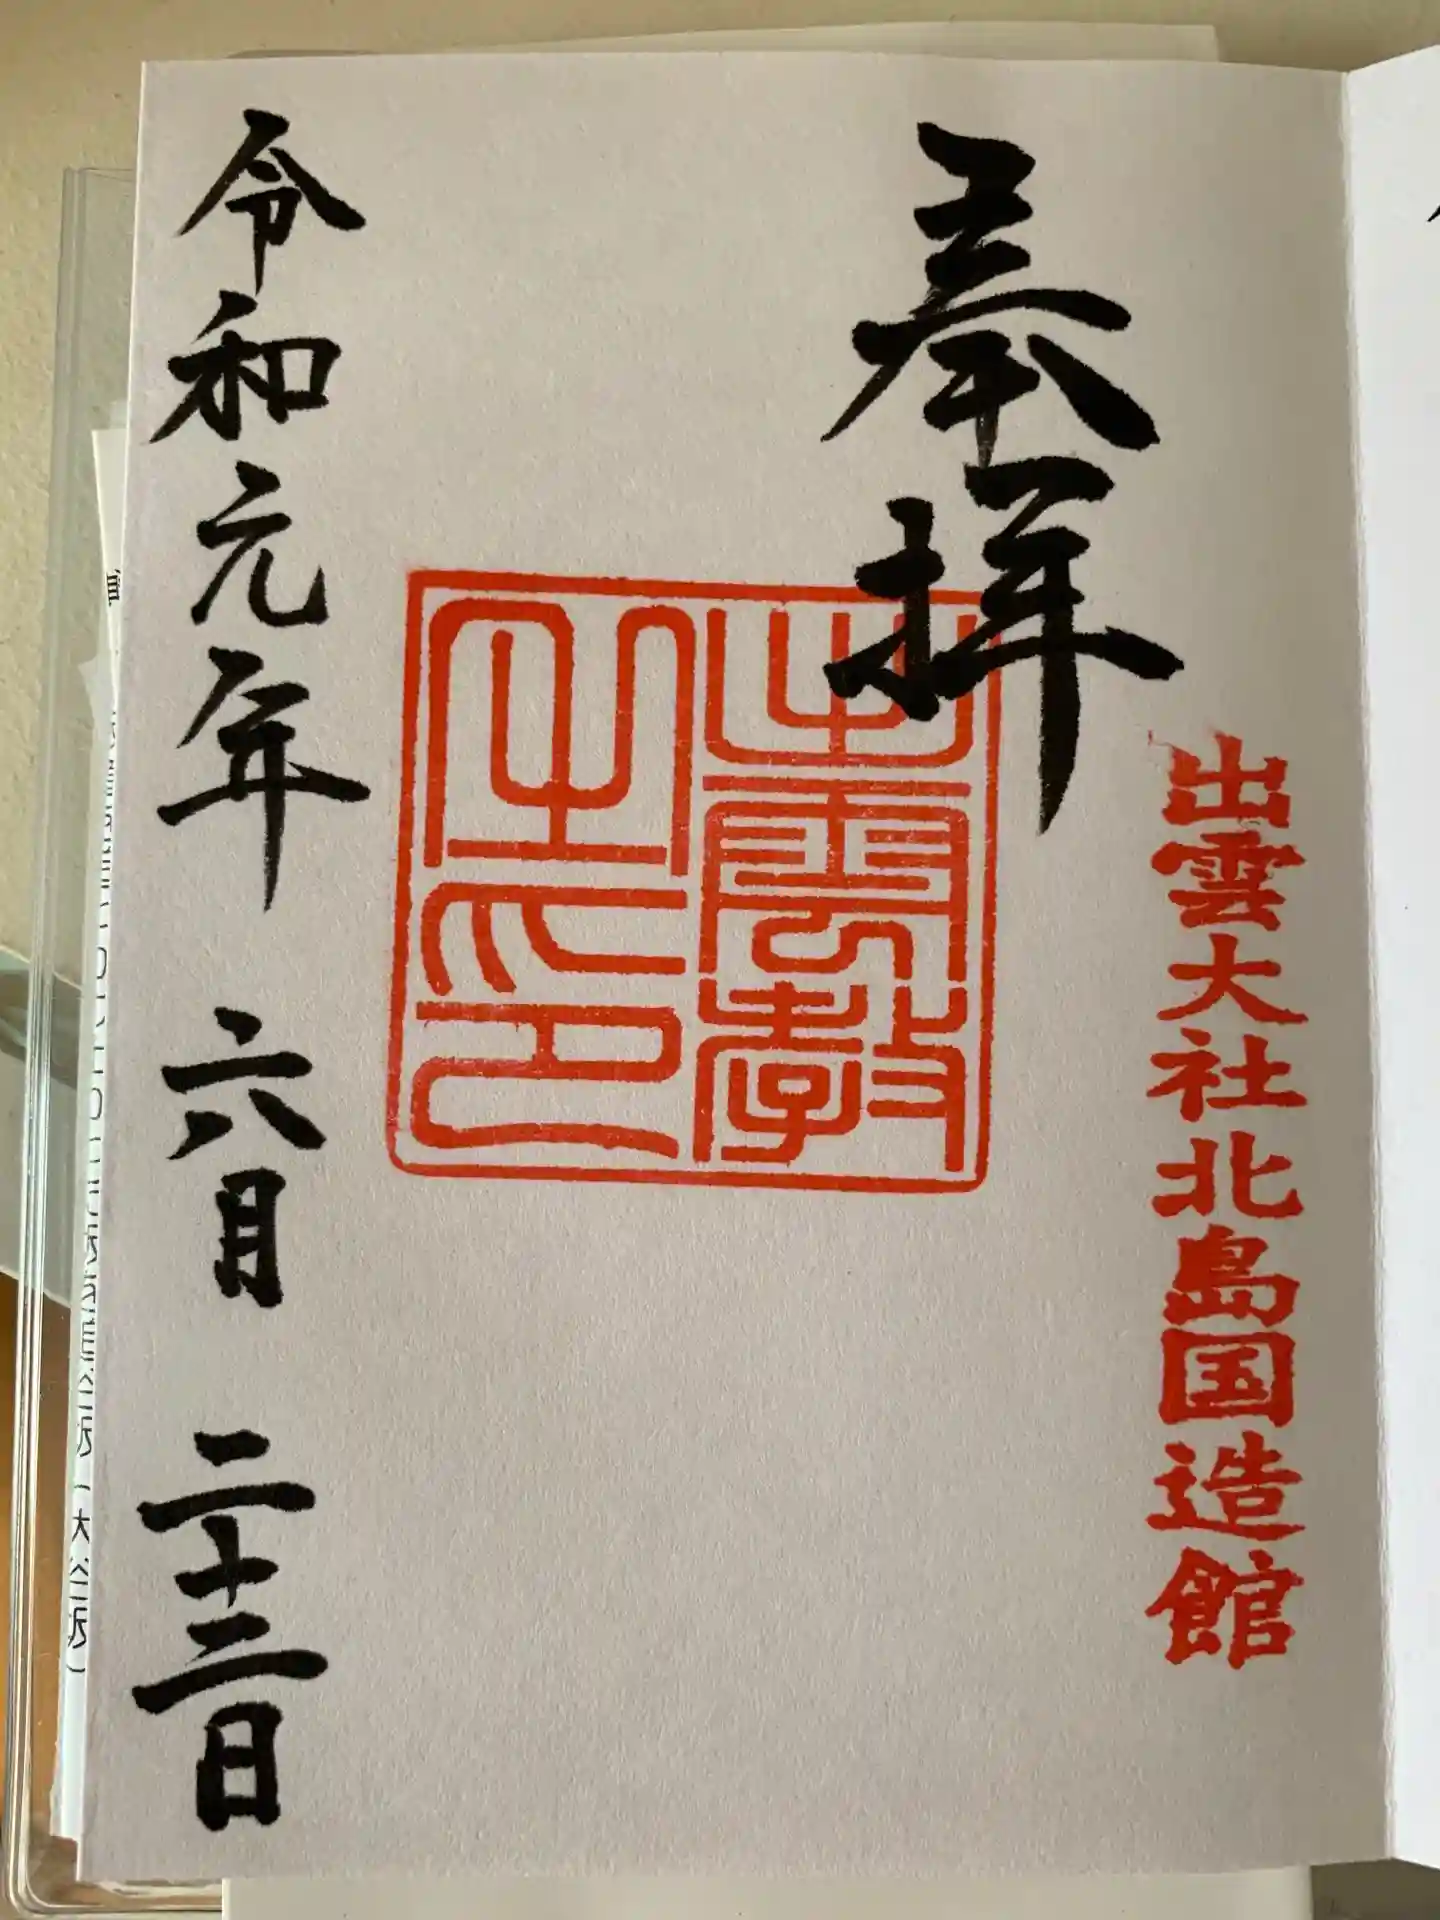 奉拝
出雲大社北島国造館
出雲教
之印
令和元年 六月 二十三日
(大谷派)